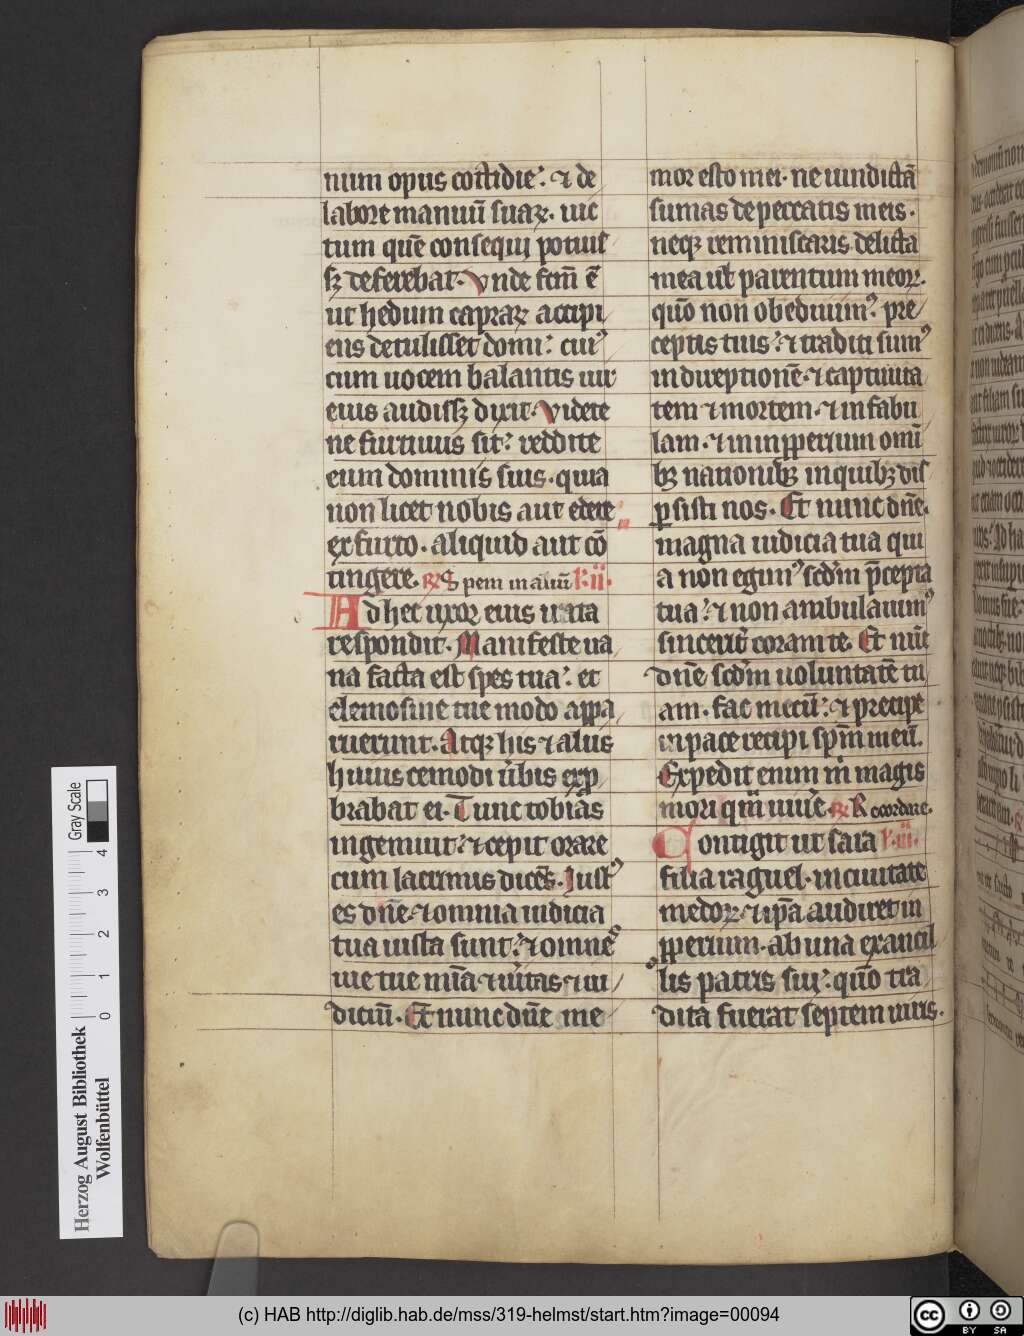 num opus cottidie. ⁊ de
labore manuū suaꝝ. uic
tum quē consequi potuis
sꝫ deferebat. Vnde fcm̄ ē
ut hedum capraꝝ accipi
ens detulisset domi. cuiꝰ
cum uocem balantis uir
eius audissꝫ dixit. Videte
ne furtiuus sit. reddite
eum dominis suis. quia
non licet nobis aut edere
ex furto. aliquid aut cō
tingere. ℞ Spem in aliū l. ii.
Ad hec uxor eius irata
respondit. Manifeste ua
na facta est spes tua. et
elemosine tue modo appa
ruerunt. Atqꝫ his ⁊ aliis
huiuscemodi u̇bis exp
brabat ei. Tunc tobias
ingemuit. ⁊ cepit orare
cum lacrimis dicēs. Iustꝰ
es dn̄e. ⁊ omnia iudicia
tua iusta sunt. ⁊ omnēˢ
uie tue mīa ⁊ u̇itas ⁊ iu
diciū. Et nunc dn̄e me
mor esto mei. ne uindictā
sumas de peccatis meis.
neqꝫ reminiscaris delicta
mea ul̄ parentum meoꝝ.
quō non obediuimꝰ pre
ceptis tuis. ⁊ traditi sumꝰ
in direptionē. ⁊ captiuita
tem ⁊ mortem. ⁊ in fabu
lam. ⁊ in inꝓperium omi
bꝫ nationibꝫ in quibꝫ dis
persisti nos. Et nunc dn̄e.
magna iudicia tua qui
a non egimꝰ scd̄m p̄cepta
tua. ⁊ non ambulauimꝰ
sincerit̄ coram te. Et nūc
dn̄e scd̄m uoluntatē tu
am. fac mecū. ⁊ precipe
in pace recipi sp̄m meū.
Expedit enim m̄ magis
mori qm̄ uiu̇e. ℞ Recordare.
Contigit ut sara l. iii.
filia raguel. in ciuitate
medoꝝ. ⁊ ip̄a audiret in
ꝓperium. ab una ex ancil
lis patris sui. quō tra
dita fuerat septem uiris.
Herzog August Bibliothek
Wolfenbüttel
0 1 2 3 4
Gray Scale
(c) HAB http://diglib.hab.de/mss/319-helmst/start.htm?image=00094
cc BY SA